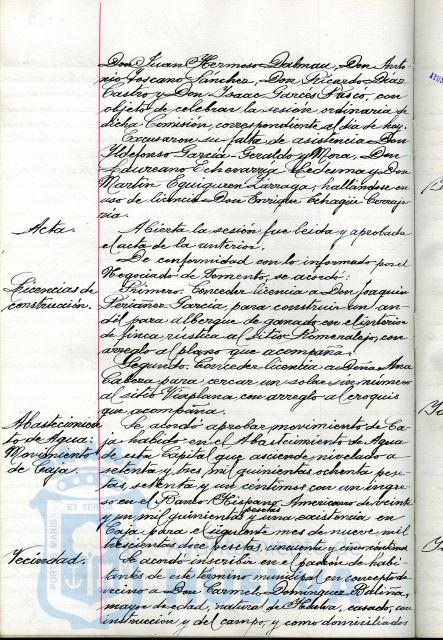 Don Juan Hermoso Dalmau, Don Anto-
nio Toscano Sánchez, Don Ricardo Díaz
Castro y Don Isaac Garcés Pascó, con
objeto de celebrar la sesión ordinaria de
dicha Comisión, correspondiente al día de hoy.
Excusaron su falta de asistencia Don
Ildefonso García-Geraldo y Mora, Don
Laureano Echevarría Ledesma y Don
Martín Eguiguren Lizarraga, hallándose en
uso de licencia Don Enrique Echagüe
Acta.
Abierta la sesión fue leida y aprobada
el acta de la anterior.
De conformidad con lo informado por el
Negociado de Fomento, se acordó:
Licencias de
construcción.
Primero: Conceder licencia a Don Joaquín
Periañez García, para construir un an-
dél para albergue de ganado en el interior
de finca rústica al sitio Romeralejo, con
arreglo al plano que acompaña.
Segundo: Conceder licencia a Doña Ana
Cabeza para cercar un solar sin número
al sitio Viaplana con arreglo al croquis
que acompaña.
Abastecimien-
to de Agua:
Movimiento
de Caja.
Se acordó aprobar movimiento de Ca-
ja habido en el Abastecimiento de Agua
de esta Capital que asciende nivelado a
setenta y tres mil quinientas ochenta pese-
tas, setenta y un céntimos con un ingre-
so en el Banco Hispano Americano de veinte
y un mil quinientas pesetas y una existencia en
Caja para el siguiente de nueve mil
trescientas dos pesetas, cincuenta y cinco céntimos
Vecindad.
Se acordó inscribir en el padrón de habi-
tantes de este término municipal en concepto de
vecino a Don Carmelo Domínguez
mayor de edad, natural de Huelva, casado, con
instrucción y del campo, y como domiciliados
ET TERRAE
PORTUS MARIS